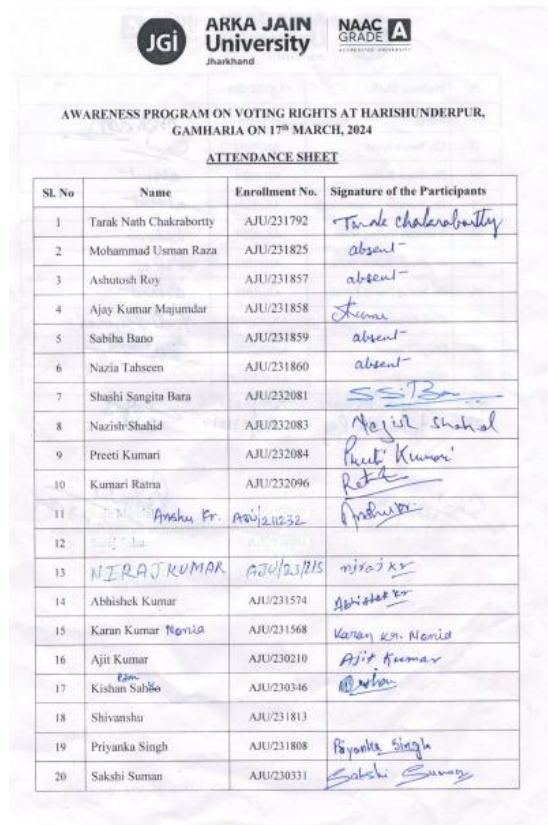 JGi
ARKA JAIN
University
Jharkhand
NAAC
GRADE A
ACCREDITED UNIVERSITY
AWARENESS PROGRAM ON VOTING RIGHTS AT HARISHUNDERPUR,
GAMHARIA ON 17th MARCH, 2024
ATTENDANCE SHEET
Sl. No Name Enrollment No. Signature of the Participants
1 Tarak Nath Chakrabortty AJU/231792 Tarak Chakrabortty
2 Mohammad Usman Raza AJU/231825 absent
3 Ashutosh Roy AJU/231857 absent
4 Ajay Kumar Majumdar AJU/231858
5 Sabiha Bano AJU/231859 absent
6 Nazia Tahseen AJU/231860 absent
7 Shashi Sangita Bara AJU/232081 S.S.Bara
8 Nazish Shahid AJU/232083 Nazish Shahid
9 Preeti Kumari AJU/232084 Preeti Kumari
10 Kumari Ratna AJU/232096
11 Anshu Kr. AJU/211232 Anshu kr
12
13 NIRAJ KUMAR niraj kr
14 Abhishek Kumar AJU/231574 Abhishek kr
15 Karan Kumar Nonia AJU/231568 Karan kr. Nonia
16 Ajit Kumar AJU/230210 Ajit Kumar
17 Kishan Ram AJU/230346
18 Shivanshu AJU/231813
19 Priyanka Singh AJU/231808 Priyanka Singh
20 Sakshi Suman AJU/230331 Sakshi Suman